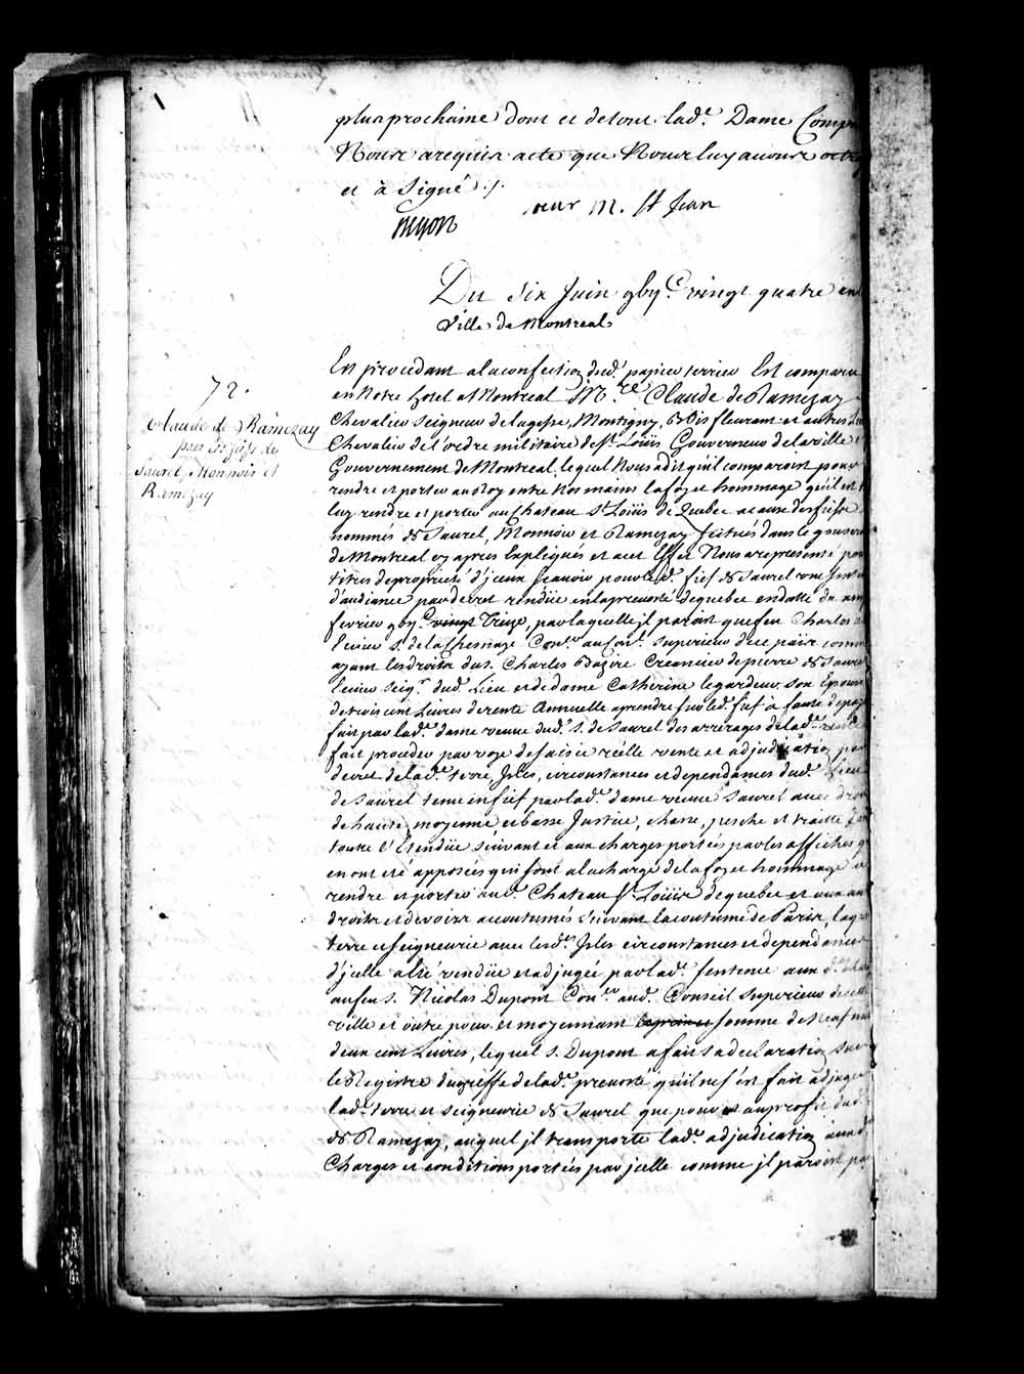 plus prochaine dont et de tout lad.e Dame Comp
Nous a requis acte que Nous luy avons octr
et a signé ./.
veuve M. St Jean
Du Six Juin gbye. vingt quatre en
Ville de Montreal
72.
Claude de Ramezay
pour les fiefs de
Saurel, Monnoir et
Ramezay
En procedant a la confection dud.t papier terrier Est comparu
en Notre hotel a Montreal M.re Claude de Ramezay
Chevalier Seigneur de lagesse, Montigny, Boisfleurant et autres
Chevalier de l'ordre militaire de St Loüis Gouverneur de la ville e
Gouvernement de Montreal, lequel Nous a dit qu'il comparoist pour
rendre et porter au Roy entre Nos mains la foy et hommage qu'il est
luy rendre et porter au Chateau St Loüis de Quebec a cause des fiefs
nommés de Saurel, Monnoir et Ramezay scitués dans le gouver
de Montreal cy apres Expliqués et a cet Effet Nous a representé pou
titres de proprieté d'jceux scavoir pour led. fief de Saurel une sente
d'audiance par decret rendüe en la prevosté de quebec en datte du
fevrier gbye. vingt Treize, par laquelle jl paroist que feu Charles
Ecuier S. de la Chesnaye Con.er au Con.l superieur de ce païs comm
ayant les droits du S. Charles Bazire Creancier de pierre de Saurel
Ecuier Seig.r dud. Lieu et de dame Catherine legardeur son Epouse
de trois cent Livres de rente Annuelle a prendre sur led. fief a faute de pay
fait par lad.e dame veuve dud.t S. de Saurel des arrerages de lad.e rente
fait proceder par voye de saisie réelle vente et adjudication par
decret de lad.e terre, Jsles, circonstances et dependances dud. Lieu
de Saurel tenu en fief par lad.e dame veuve Saurel avec droit
de haute moyenne, et basse Justice, chasse, pesche et traitte dans
toute l'Etendüe suivant et aux charges portées par les affiches q
en ont eté apposées qui sont a la charge de la foy et hommage a
rendre et porter aud. Chateau St Loüis de quebec et aux au
droits et devoirs accoutumés suivant la coutume de Paris, laq
terre et seigneurie avec lesd.es Jsles circonstances et dependances
d'jcelle a eté vendüe et adjugée par lad.e sentence
au feu S. Nicolas Dupont Con.er aud. Conseil Superieur de cette
ville et outre pour et moyennant somme de Neuf mil
deux cent Livres, lequel S. Dupont a fait sa declaration sur
le Registre du greffe de lad.e prevosté qu'il ne s'est fait adjuger
lad.e terre et seigneurie de Saurel que pour et au profit dud.
de Ramezay, auquel jl transporte lad.e adjudication aux
Charges et conditions portées par jcelle comme jl paroist pa